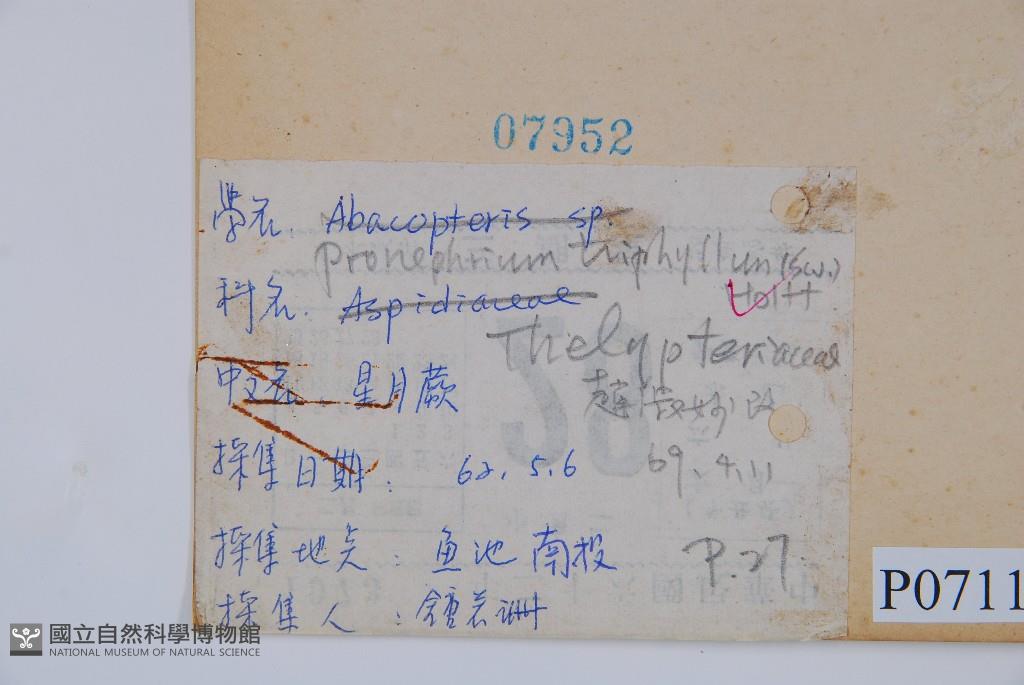 07952
學名. Abacopteris sp.
Pronephrium triphyllum (Sw.)
Holtt
科名. Aspidiaceae
Thelypteriaceae
中文名 星月蕨
趙淑妙改
採集日期: 62.5.6
69.4.11
採集地点: 魚池南投
P.27.
採集人:
P0711
國立自然科學博物館
NATIONAL MUSEUM OF NATURAL SCIENCE